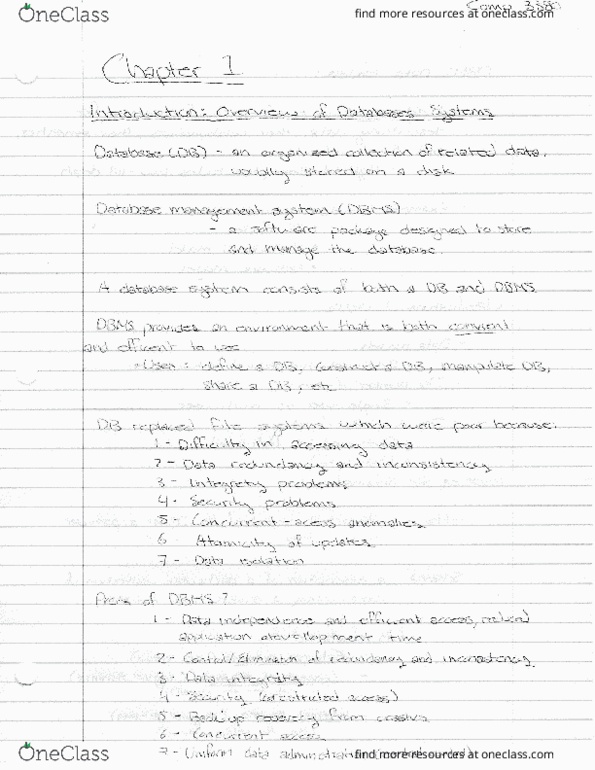 OneClass
find more resources at oneclass.com
Comp 3380
Chapter 1
Introduction: Overview of Databases Systems
Database (DB) - an organized collection of related data,
usually stored on a disk
Database management system (DBMS)
- a software package designed to store
and manage the database.
A database system consists of both a DB and DBMS
DBMS provides an environment that is both
and efficient to use
- Uses: define a DB, construct a DB, manipulate DB,
share a DB, etc
DB replaced file systems which were poor because:
1 - Difficulty in accessing data
2 - Data redundancy and inconsistency
3 - Integrety problems
4 - Security problems
5 - Concurrent - access anomalies
6 - Atomicity of updates
7 - Data isolation
Pros of DBMS?
1 - Data independence and efficient access,
application time
2 - Control/Elimination of redundancy and inconsistency
3 - Data integrity
4 - Security (restricted access)
5 - Backup recovery from crashes
6 - Concurrent access
7 - Uniform data
OneClass
find more resources at oneclass.com